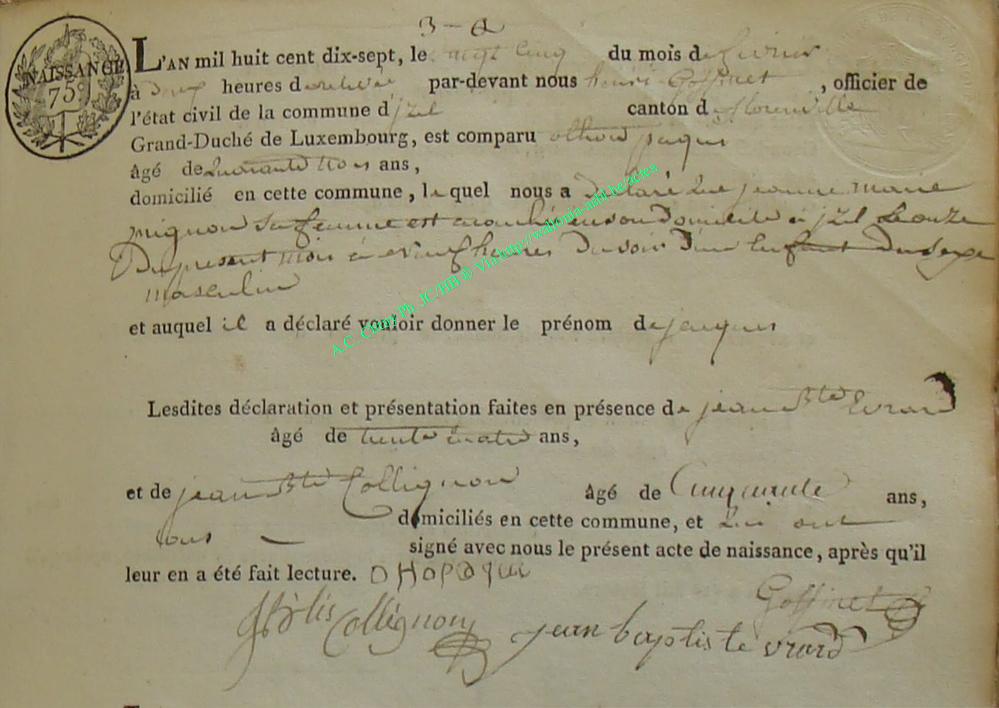 3 - a
NAISSANCE
75 c
L'AN mil huit cent dix-sept, le vingt cinq du mois de fevrier
à heures de relevée par-devant nous henri Goffinet, officier de
l'état civil de la commune d'jzel canton de florenville
Grand-Duché de Luxembourg, est comparu jaques
âgé de quarante trois ans,
domicilié en cette commune, lequel nous a declaré que jeanne marie
mignon sa femme est acouchée en son domicile a jzel le onze
Du present mois a neuf heures du soir d'un enfant du sexe
masculin
et auquel il a déclaré vouloir donner le prénom de jacques
Lesdites déclaration et présentation faites en présence de jean Bte Evrard
âgé de trente quatre ans,
et de jean Bte Collignon âgé de Cinquante ans,
domiciliés en cette commune, et qui ont
tous - signé avec nous le présent acte de naissance, après qu'il
leur en a été fait lecture.
Goffinet
Collignon jean baptiste vrard
A.C. Chiny Ph JC/HB © Via http://wallonia-asbl.be/actes